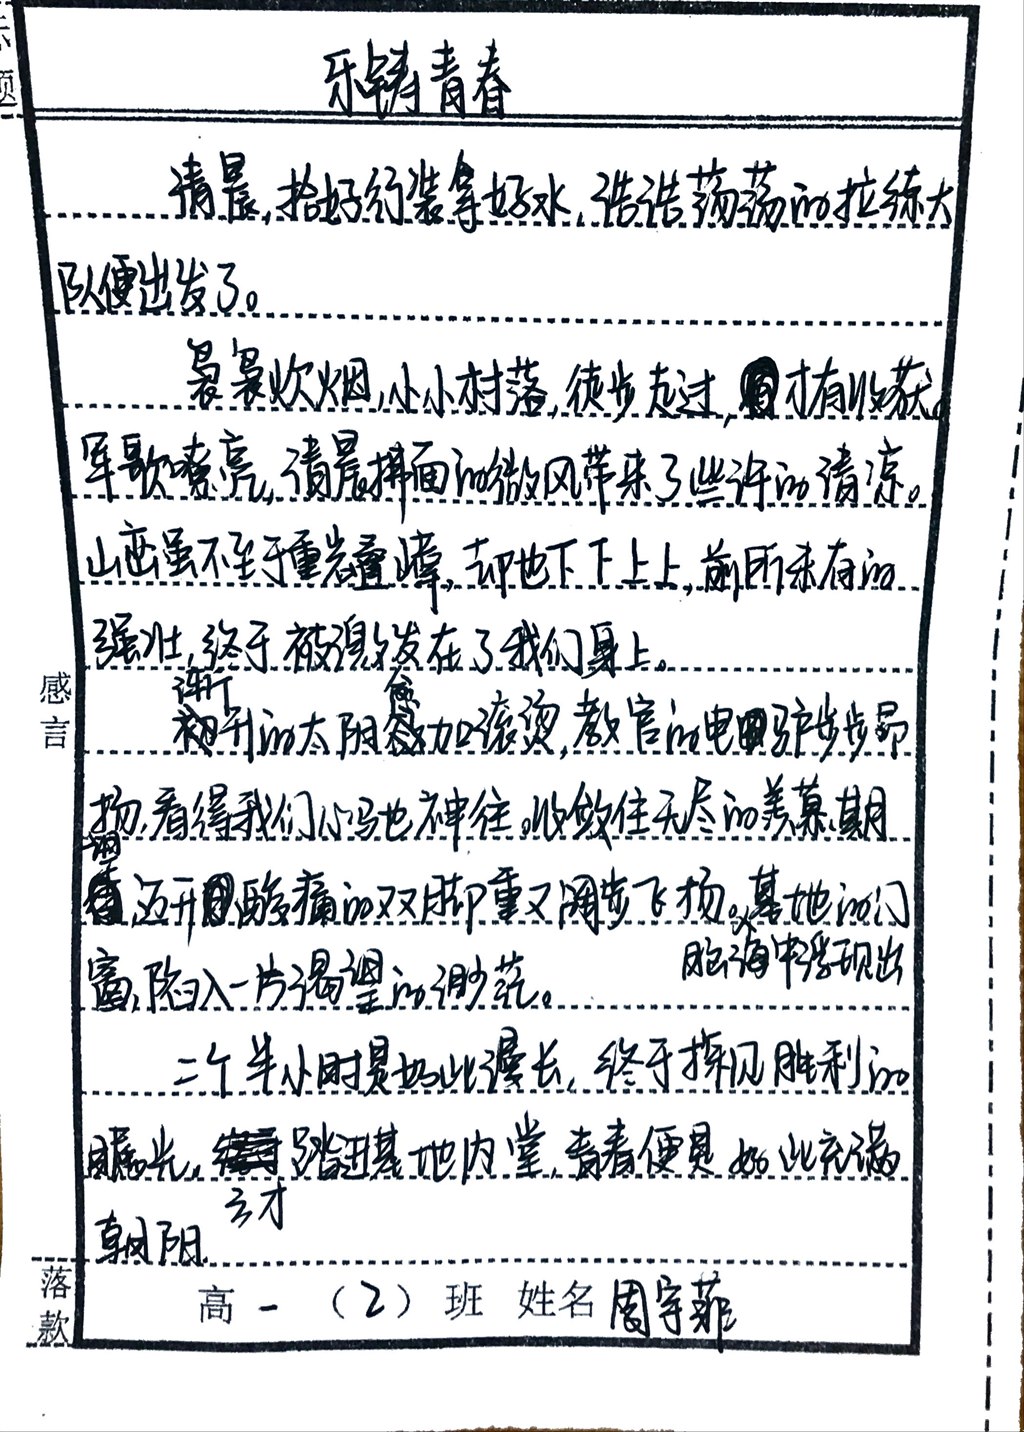 标题
乐铸青春
清晨,拾好行装拿好水,浩浩荡荡的拉练大
队便出发了。
袅袅炊烟,小小村落,徒步走过,才有收获。
军歌嘹亮,清晨拂面的微风带来了些许的清凉。
山峦虽不至于重岩叠嶂,却也下下上上,前所未有的
强壮,终于被激发在了我们身上。
渐升的太阳愈加滚烫,教官的电驴步步昂
扬,看得我们心驰神往。收敛住无尽的羡慕、期
望,迈开酸痛的双脚重又阔步飞扬。基地的门
窗,陷入一片渴望的渺茫。
脑海中浮现出
二个半小时竟如此漫长,终于探见胜利的
曙光,踏进基地内堂,青春便是如此充满
方才
朝阳.
感言
落款
高一(2)班 姓名 周宇菲